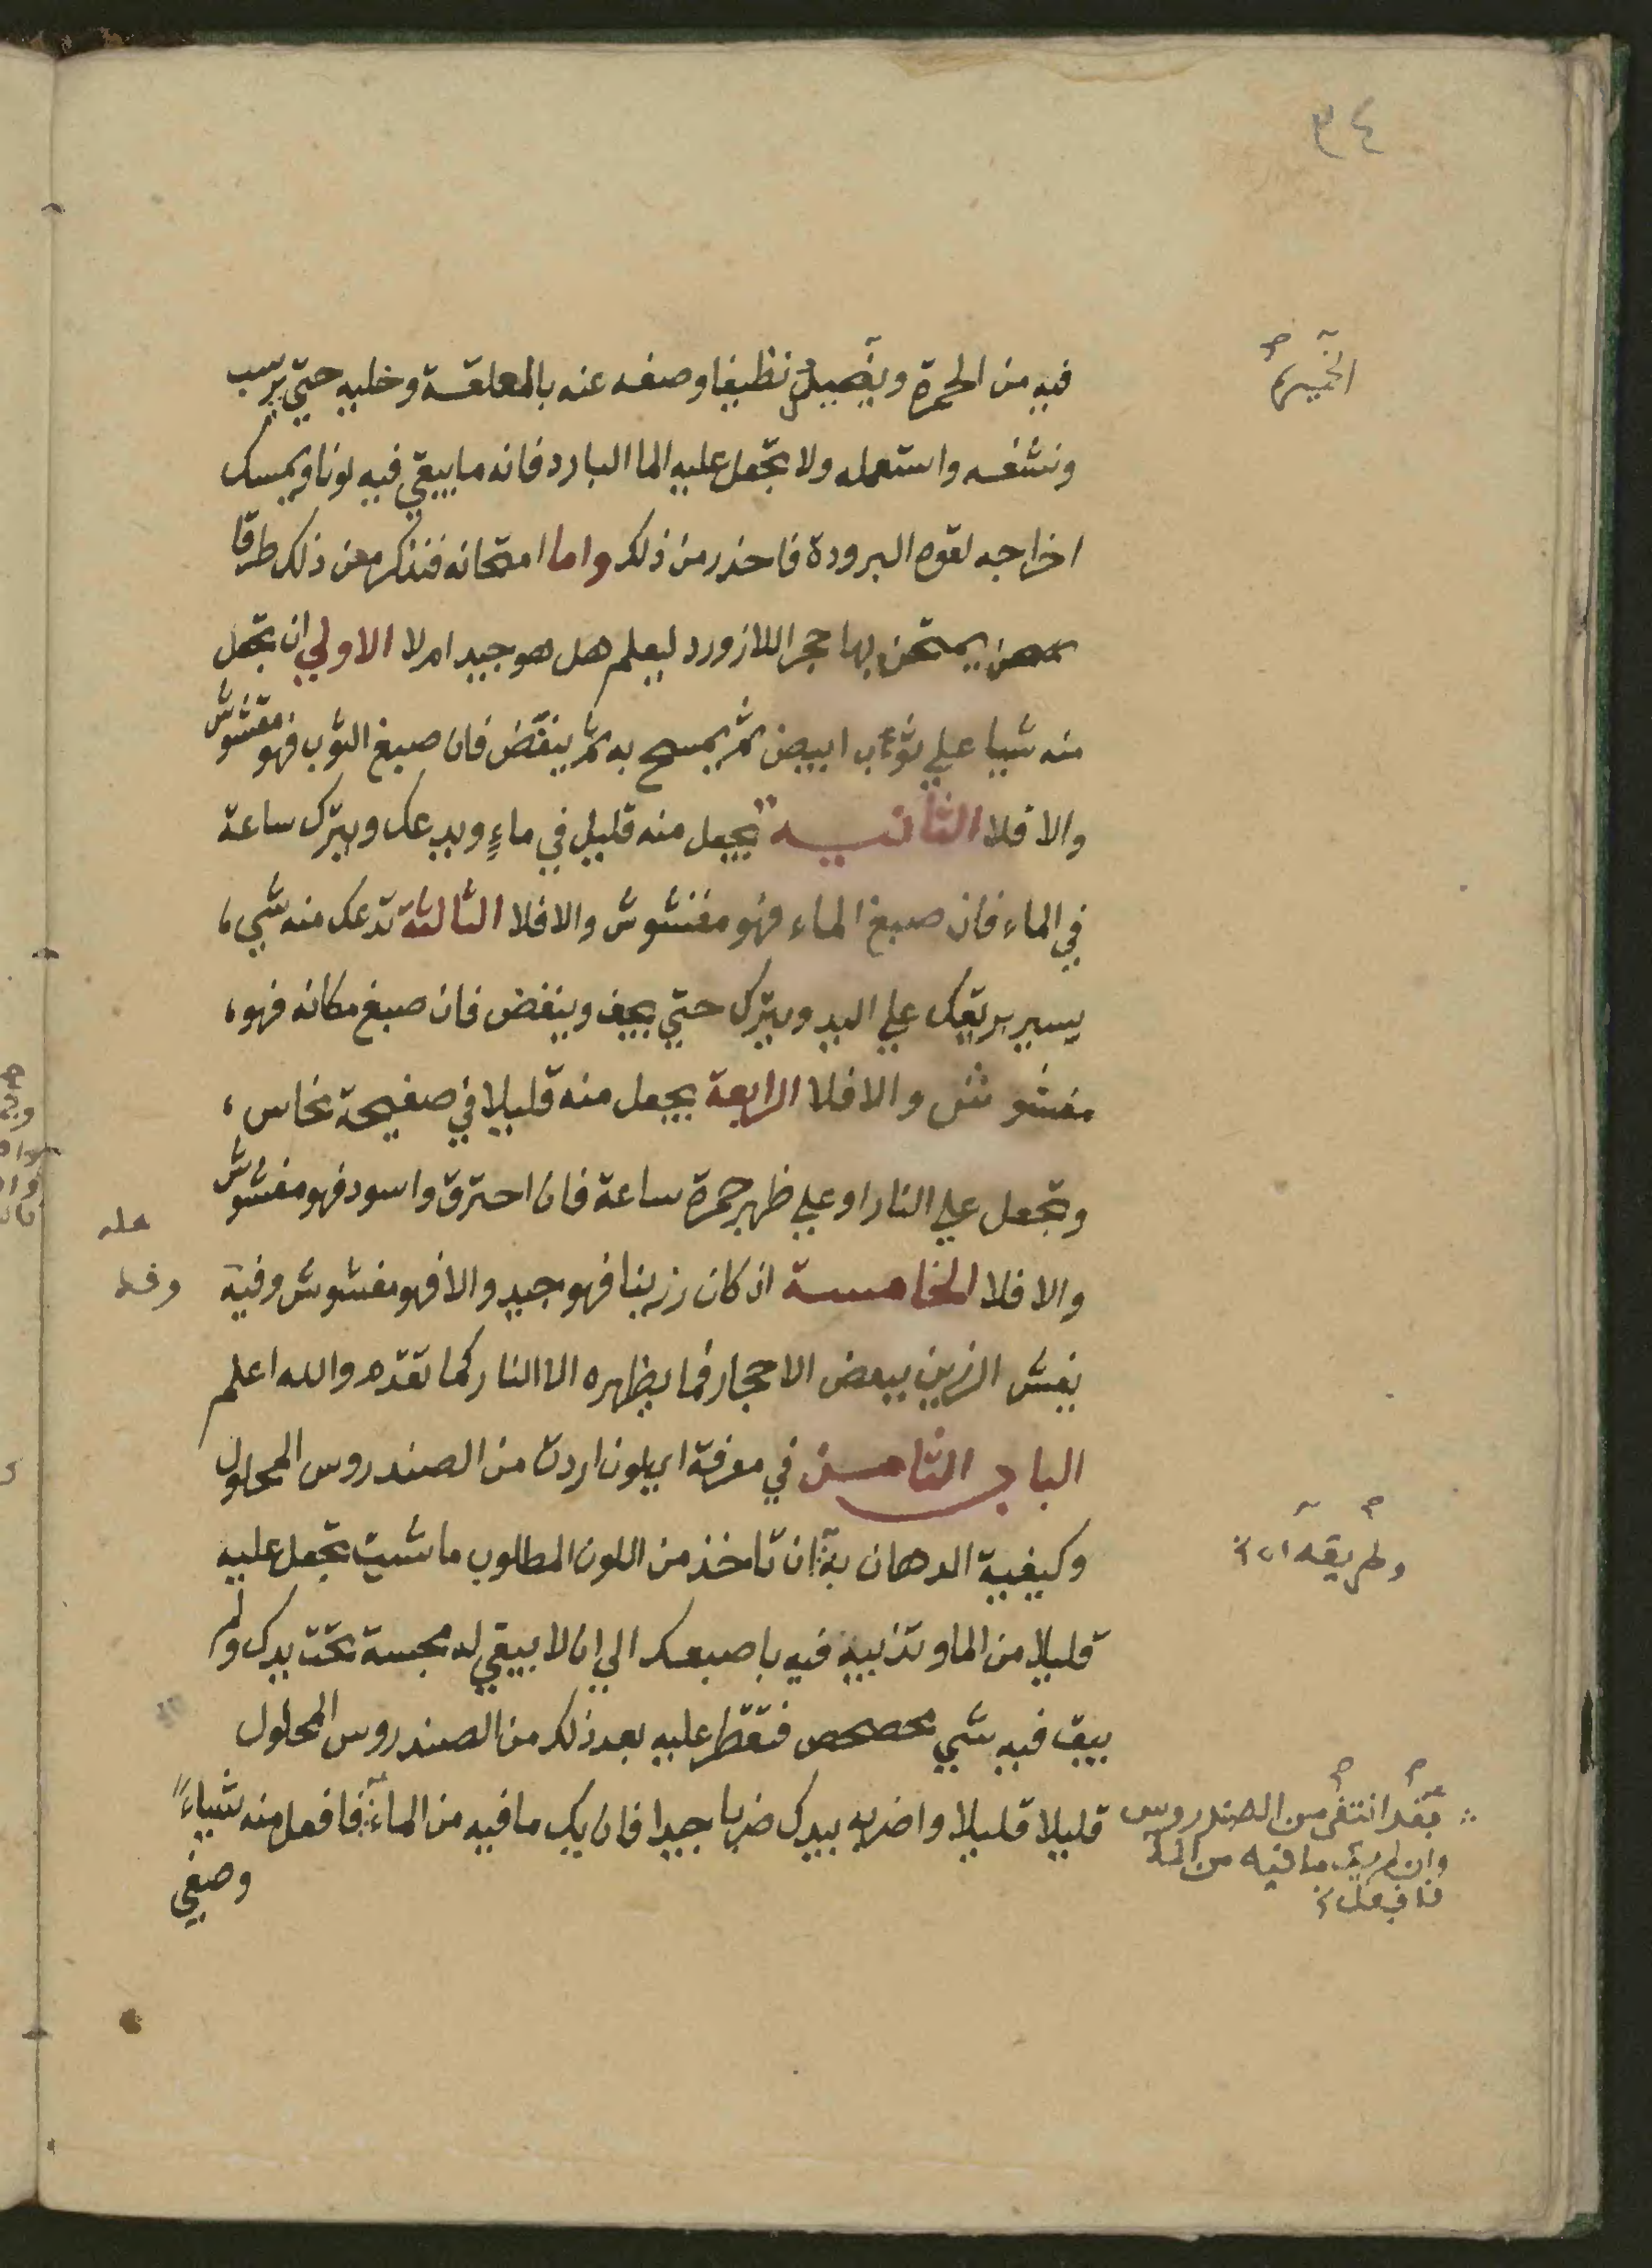 ٣٤
فيه من الحمرة ويصير نظيفا وصفه عنه بالملعقة وخليه حتي يرسب
الخميرة
ونشفه واستعمله ولا تجعل عليه الما البارد فانه ما يبقي فيه لونا ويمسك
اخراجه لقوه البرودة فاحذر من ذلك واما امتحانه فنذكر من ذلك طرقا
يمتحن بها حجر اللازورد ليعلم هل هو جيد ام لا الاولي ان تجعل
منه شيا علي ثوب ابيض ثم يمسح به ثم ينفض فان صبغ الثوب فهو مغشوش
والا فلا الثانيه يجعل منه قليل في ماءٍ ويدعك ويترك ساعة
في الماء فان صبغ الماء فهو مغشوش والا فلا الثالثة تدعك منه شي
يسير بريقك علي اليد ويترك حتي يجف وينفض فان صبغ مكانه فهو
مغشوش والا فلا الرابعة يجعل منه قليلا في صفيحة نحاس
وتجعل علي النار او علي ظهر جمرة ساعة فان احترق واسود فهو مغشوش
والا فلا الخامسة ان كان رزينا فهو جيد والا فهو مغشوش وفيه
عله
وقد
يغش الرزين ببعض الاحجار فما يظهره الا النار كما تقدم والله اعلم
الباب الثامن في معرفة اي لون اردت من الصندروس المحلول
وكيفية الدهان به ان تاخذ من اللون المطلوب ما شيت تجعل عليه
وطريقه ان
قليلا من الما وتذيبه فيه باصبعك الي ان لا يبقي له مجسة تحت يدك ولم
يبق فيه شي محصحص فتقطر عليه بعد ذلك من الصندروس المحلول
قليلا قليلا واضربه بيدك ضربا جيدا فان يك ما فيه من الماء فافعل منه شياءً
من الصندروس
وان لم يك ما فيه من الما
فافعل
وصفي